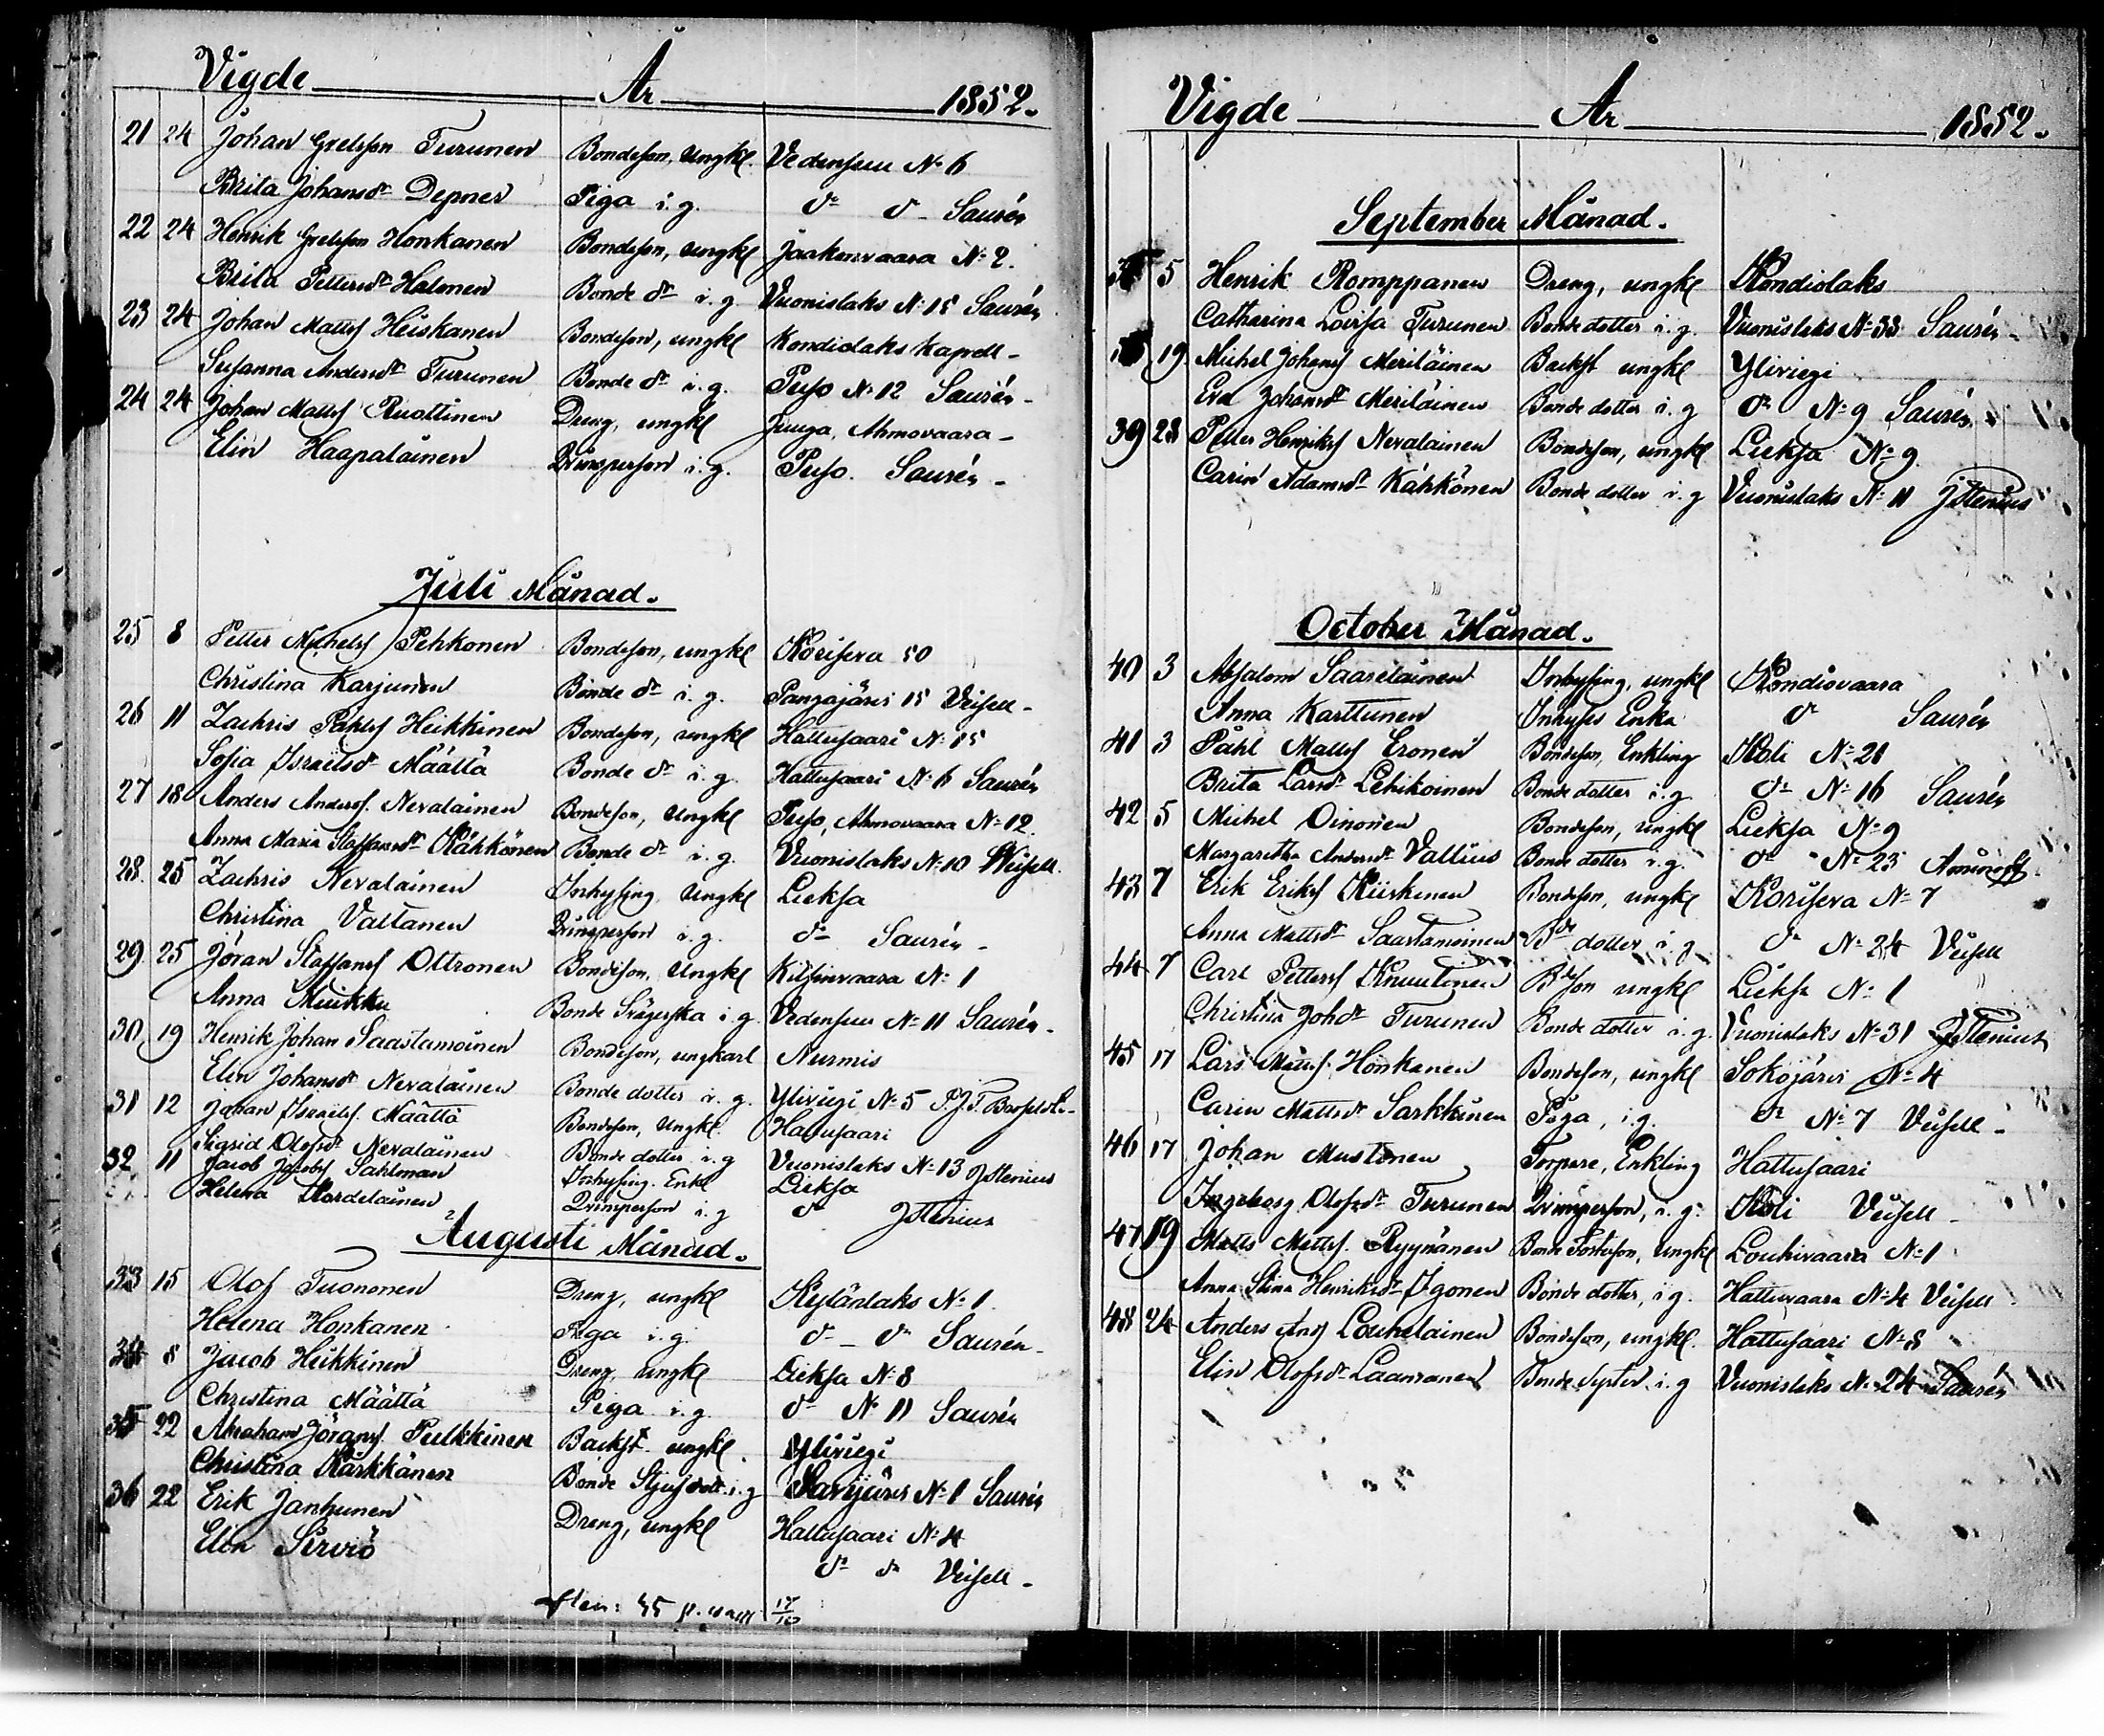 Vigde År 1852.
21 24 Johan Grelsson Turunen Bondeson, Ungkl. Vedensuu № 6
Brita Johansdr Depner Piga i.g. do do Saurén
22 24 Henrik Grelsson Honkanen Bondeson, ungkl Jaakonvaara № 2.
Brita Pettersdr Halonen Bonde dr i.g Vuonislaks № 15 Saurén
23 24 Johan Mattss Heiskanen Bondeson, ungkl Kondiolaks Kapell -
Susanna Andersdr Turunen Bonde dr i.g. Puso № 12 Saurén -
24 24 Johan Mattss Ruottinen Dreng, ungkl Juuga, Ahmovaara -
Elin Haapalainen Qvinsperson i.g. Puso. Saurén -
Juli Månad.
25 8 Petter Michelss Pehkonen Bondeson, ungkl Koriseva 50
Christina Karjunen Bonde dr i.g. Pangajärvi 15 Veisell -
26 11 Zachris Påhlss Heikkinen Bondeson, ungkl Hattusaari № 15
Sofia Israelsdr Määttä Bonde dr i.g. Hattusaari № 6 Saurén
27 18 Anders Anderss. Nevalainen Bondeson, Ungkl Puso, Ahmovaara № 12.
Anna Maria Staffansdr Kähkönen Bonde dr i.g. Vuonislaks № 10 Weisell.
28. 25 Zachris Nevalainen Inhysing Ungkl Lieksa
Christina Valtanen Qvinsperson i.g. do Saurén -
29. 25 Jöran Staffanss Ottronen Bondeson, Ungkl Kitsinvaara № 1
Anna Muikku Bonde Svägerska i.g. Vedensuu № 11 Saurén -
30 19 Henrik Johan Saastamoinen Bondeson, ungkarl Nurmis
Elin Johansdr Nevalainen Bonde dotter i.g. Yliviegi № 5
31 12 Johan Israelss. Määttä Bondeson, Ungkl. Hattusaari
Sigrid Olofsdr Nevalainen Bonde dotter i.g Vuonislaks № 13 JStenius
32 11 Jacob Jacobss Sahlman Inhysing. Enkl Lieksa
Helena Kardelainen Qvinsperson i.g do JStenius
Augusti Månad.
33 15 Olof Tuononen Dreng, ungkl Kylänlaks № 1
Helena Honkanen Piga i.g. do do Saurén -
34 8 Jacob Heikkinen Dreng, ungkl Lieksa № 8
Christina Määttä Piga i.g. do № 11 Saurén
35 22 Abraham Jöranss. Pulkkinen Backst. ungkl. Yliviegi
Christina Kärkkänen Bonde Stjufdott. i.g Savijärvi № 1 Saurén
36 22 Erik Janhunen Dreng, ungkl Hattusaari № 4
Elin Sirviö do do Veisell -
17/10
Vigde År 1852.
September Månad.
5 Henrik Romppanen Dreng, ungkl Kondiolaks
Catharina Lovisa Turunen Bonde dotter i.g. Vuonislaks № 33 Saurén -
19. Michel Johanss Meriläinen Backst ungkl Yliviegi
Eva Johansdr Meriläinen Bonde dotter i.g do № 9 Saurén
39 28 Petter Henrikss Nevalainen Bondeson, ungkl Lieksa № 9
Carin Adamsdr Kähkönen Bonde dotter i.g Vuonislaks № 11 JStenius
October Månad.
40 3 Absalom Saarelainen Inhysing, ungkl Kondiovaara
Anna Karttunen Inhyses Enka do Saurén
41 3 Påhl Mattss Eronen Bondeson, Enkling Koli № 21
Brita Larsdr Lehikoinen Bonde dotter i.g. do № 16 Saurén
42 5 Michel Oinonen Bondeson, Ungkl Lieksa № 9
Margaretha Andersdr Vallius Bonde dotter i.g. do № 23 Aminoff
43 7 Erik Erikss Kiiskinen Bondeson, ungkl Koriseva № 7
Anna Mattsdr Saastamoinen Bde dotter i.g do № 24 Veisell
44 7 Carl Petterss Knuutinen Bdeson ungkl Lieksa № 1
Christina Johdr Turunen Bonde dotter i.g. Vuonislaks № 31 JStenius
45 17 Lars Mattss. Honkanen Bondeson, ungkl Sokojärvi № 4
Carin Mattsdr Sarkkinen Piga, i.g. do № 7 Veisell -
46 17 Johan Mustonen Torpare, Enkling Hattusaari
Ingeborg Olofsdr Turunen Qvinsperson, i.g. Koli Veisell -
47 19 Matts Mattss. Ryynänen Bonde Fosterson, Ungkl Louhivaara № 1
Anna Stina Henriksdr Igonen Bonde dotter, i.g. Hattuvaara № 4 Veisell
48 24 Anders Ands Loukelainen Bondeson, ungkl. Hattusaari № 8
Elin Olofsdr Laamanen Bonde Syster i.g Vuonislaks № 24 Saurén